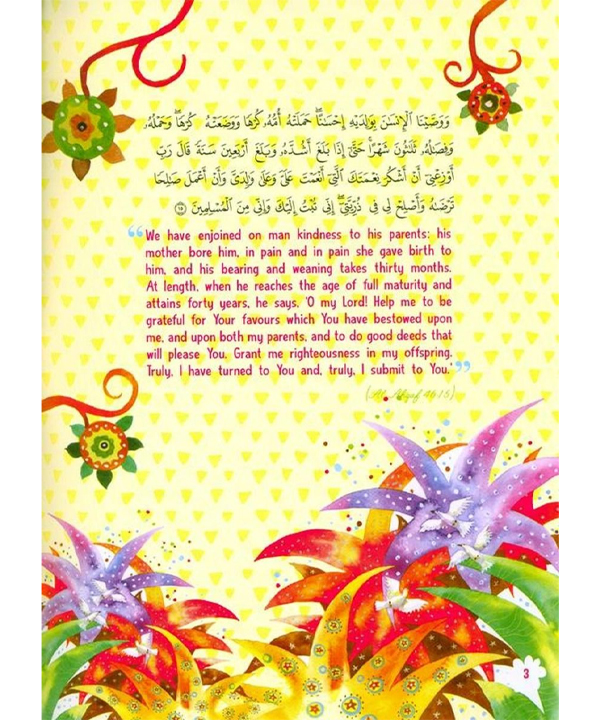 وَوَصَّيْنَا ٱلْإِنسَٰنَ بِوَٰلِدَيْهِ إِحْسَٰنًا ۖ حَمَلَتْهُ أُمُّهُۥ كُرْهًا وَوَضَعَتْهُ كُرْهًا ۖ وَحَمْلُهُۥ
وَفِصَٰلُهُۥ ثَلَٰثُونَ شَهْرًا ۚ حَتَّىٰٓ إِذَا بَلَغَ أَشُدَّهُۥ وَبَلَغَ أَرْبَعِينَ سَنَةً قَالَ رَبِّ
أَوْزِعْنِىٓ أَنْ أَشْكُرَ نِعْمَتَكَ ٱلَّتِىٓ أَنْعَمْتَ عَلَىَّ وَعَلَىٰ وَٰلِدَىَّ وَأَنْ أَعْمَلَ صَٰلِحًا
تَرْضَىٰهُ وَأَصْلِحْ لِى فِى ذُرِّيَّتِىٓ ۖ إِنِّى تُبْتُ إِلَيْكَ وَإِنِّى مِنَ ٱلْمُسْلِمِينَ ١٥
“We have enjoined on man kindness to his parents; his
mother bore him, in pain and in pain she gave birth to
him, and his bearing and weaning takes thirty months.
At length, when he reaches the age of full maturity and
attains forty years, he says, 'O my Lord! Help me to be
grateful for Your favours which You have bestowed upon
me, and upon both my parents, and to do good deeds that
will please You. Grant me righteousness in my offspring.
Truly, I have turned to You and, truly, I submit to You.'”
(Al Ahqaf 46:15)
3